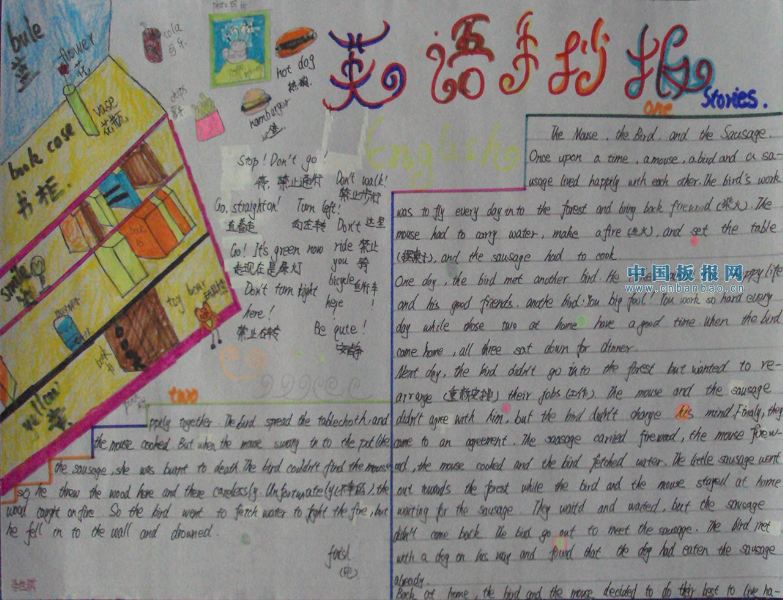 bule
蓝
flower
花
vase
花瓶
book case
书柜.
smile
yellow
toy bear
cola
可乐
hot dog
热狗
hamburger
汉堡
英语手抄报
English
one
Stories.
Stop! Don't go!
Don't walk!
禁止步行
Go straight on!
直着走
Turn left!
向左转
Don't
ride
you
bicycle
here
!
这里
禁止
Go! It's green now
走现在是绿灯
Don't turn right
here!
禁止右转
Be quite!
安静
The Mouse, the Bird and the Sausage
Once upon a time, a mouse, a bird and a sa-
usage lived happily with each other. The bird's work
was to fly every day in to the forest and bring back firewood (柴火). The
mouse had to carry water, make a fire (生火), and set the table
(摆桌子), and the sausage had to cook.
One day, the bird met another bird He happy life
and his good friends. anothe bird: You big fool! You work so hard every
day while those two at home have a good time when the bird
come home, all three sat down for dinner.
Next day, the bird didn't go into the forest but wanted to re-
arrange (重新安排) their jobs (工作). The mouse and the sausage
didn't agree with him, but the bird didn't change his mind. Finaly, they
came to an agreement. The sausage carried firewood, the mouse
the mouse cooked and the bird fetched water. The little sausage went
out the forest while the bird and the mouse stayed at home
waiting for the sausage. They waitd and waited, but the sausage
didn't come back. The bird go out to meet the sausage. The bird met
with a dog on his way and found that the dog had eaten the sausage
already.
Back at home, the bird and the mouse decided to do their best to live ha-
two
ppily together. The bird spread the tablechoth, and
the mouse cooked. But when the mouse swang in to the pot like
the sausage, she was burnt to death. The bird couldn't find the mouse
so he threw the wood here and there carelessly. Unfortunately (不幸的), the
wood caught on fire. So the bird went to fetch water to fight the fire, but
he fell in to the wall and drowned.
中国板报网
www.cnbanbao.cn